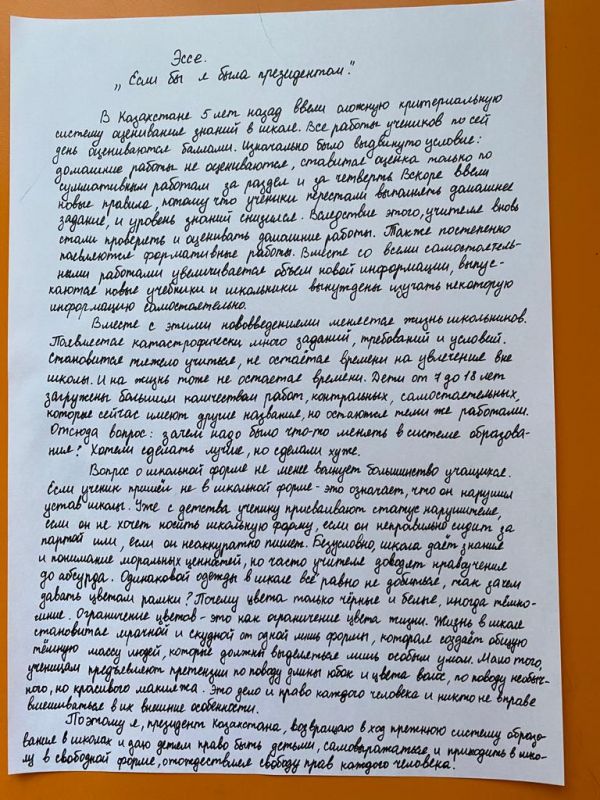 Эссе.
„Если бы я была президентом".
В Казахстане 5 лет назад ввели сложную критериальную
систему оценивание знаний в школе. Все работы учеников по сей
день оцениваются балами. Изначально было выдвинуто условие:
домашние работы не оцениваются, ставится оценка только по
суммативным работам за раздел и за четверть. Вскоре ввели
новые правила, потому что ученики перестали выполнять домашнее
задание, и уровень знаний снизился. Вследствие этого, учителя вновь
стали проверять и оценивать домашние работы. Также постепенно
появляются формативные работы. Вместе со всеми самостоятель-
ными работами увеличивается объём новой информации, выпус-
каются новые учебники и школьники вынуждены изучать некоторую
информацию самостоятельно.
Вместе с этими нововведениями меняется жизнь школьников.
Появляется катастрофически много заданий, требований и условий.
Становится тяжело учиться, не остаётся времени на увлечения вне
школы. И на жизнь тоже не остаётся времени. Дети от 7 до 18 лет
загружены большим количеством работ, контрольных, самостоятельных,
которые сейчас имеют другие название, но остаются теми же работами.
Отсюда вопрос: зачем надо было что-то менять в системе образова-
ния? Хотели сделать лучше, но сделали хуже.
Вопрос о школьной форме не менее волнует большинство учащихся.
Если ученик пришёл не в школьной форме - это означает, что он нарушил
устав школы. Уже с детства ученику присваивают статус нарушителя,
если он не хочет носить школьную форму, если он неправильно сидит за
партой или, если он неаккуратно пишет. Безусловно, школа даёт знания
и понимание моральных ценностей, но часто учителя доводят нравоучения
до абсурда. Одинаковой одежды в школе всё равно не добиться, так зачем
давать цветам рамки? Почему цвета только чёрные и белые, иногда тёмно-
синие. Ограничение цветов - это как ограничение цвета жизни. Жизнь в школе
становится мрачной и скудной от одной лишь формы, которая создаёт общую
тёмную массу людей, которые должны выделяться лишь особым умом. Мало того,
ученицам предъявляют претензии по поводу длины юбок и цвета волос, по поводу необыч-
ного, но красивого макияжа. Это дело и право каждого человека и никто не вправе
вмешиваться в их внешние особенности.
Поэтому я, президент Казахстана, возвращаю в ход прежнюю систему образо-
вания в школах и даю детям право быть детьми, самовыражаться, и приходить в шко-
лу в свободной форме, отождествляя свободу прав каждого человека.